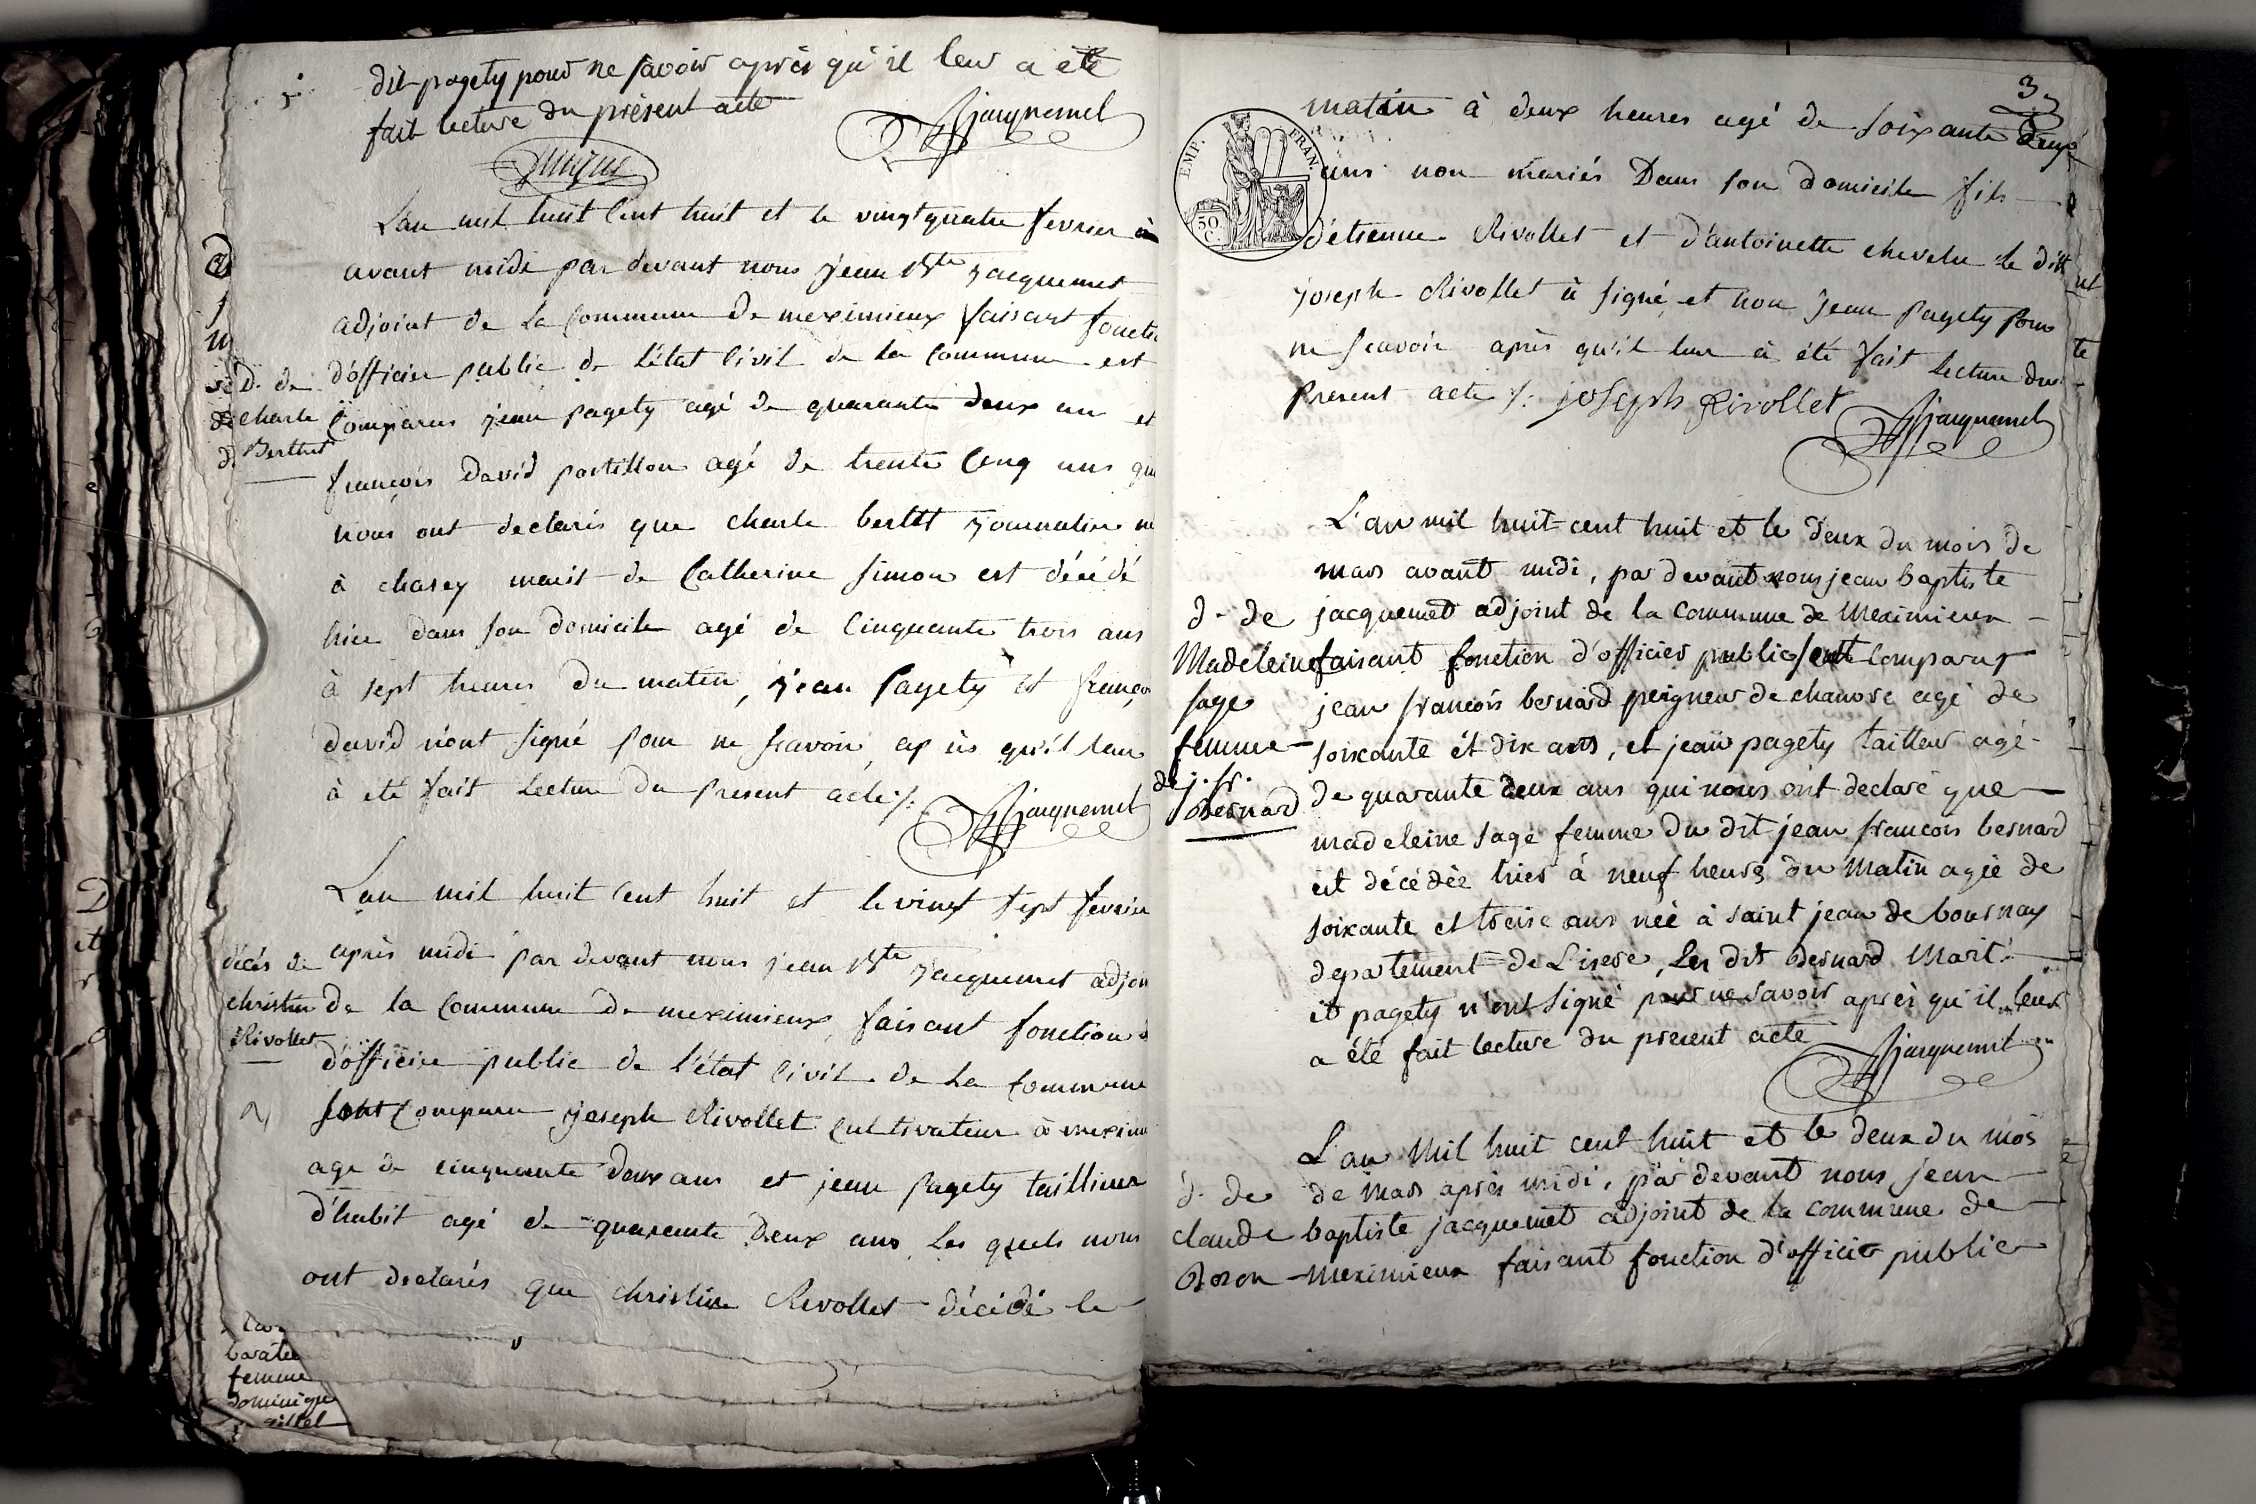 dit pagety pour ne savoir après qu'il leur a été
fait lecture du présent acte
Jjacquemet
L'an mil huit Cent huit et le vingt quatre fevrier à
avant midi par devant nous jean Bte jacquemet
adjoint de la Commune de meximieux faisant foncti
d'officier public de l'état Civil de la Commune est
D. de
charle
Berthet
Comparus jean pagety agé de quarante deux an et
françois david postillon agé de trente Cinq ans qui
nous ont declarés que charle bertet journalier
à chasey marit de Catherine simon est décédé
hier dans son domicile agé de Cinquante trois ans
à sept heures du matin, jean Pagety et françois
david n'ont signé pour ne scavoir, après qu'il leur
à été fait lecture du present acte ./.
Jjacquemet
L'an mil huit Cent huit et le vingt sept fevrier
décès de
christin
Rivollet
après midi par devant nous jean Bte jacquemet adjoin
de la Commune de meximieux, faisant fonction
d'officier public de l'état Civil de la Commune
sont Comparu joseph Rivollet Cultivateur à mexim
age de cinquante deux ans et jean pagety taillieur
d'habit agé de quarante deux ans, les quels nous
ont declarés que christin Rivollet décédé le
baratte
femme
dominique
3
EMP. FRAN.
50
C.
matin à deux heures agé de soixante deux
ans non mariés Dans son domicile fils
d'étienne Rivollet et d'antoinette chevelu le dit
joseph Rivollet à signé, et non jean pagety pour
ne scavoir après qu'il leur à été fait lecture du
present acte ./. joseph Rivollet
Jjacquemet
L'an mil huit cent huit et le deux du mois de
mars avant midi, par devant nous jean baptiste
d. de
Madeleine
sage
femme
de j. fr.
Bernard
jacquemet adjoint de la Commune de Meximieux
faisant fonction d'officier public sont Comparus
jean françois bernard peigneur de chanvre agé de
soixante et dix ans, et jean pagety tailleur agé
de quarante deux ans qui nous ont declaré que
madeleine sage femme du dit jean françois bernard
est décédée hier à neuf heures du matin agée de
soixante et treise ans née à saint jean de bournay
departement de Lisere, Les dit Bernard Marit
et pagety n'ont signé pour ne savoir après qu'il leur
a été fait lecture du present acte
Jjacquemet
L'an Mil huit cent huit et le deux du mois
d. de
claude
Bozon
de Mars après midi, par devant nous jean
baptiste jacquemet adjoint de la commune de
Meximieux faisant fonction d'officier public